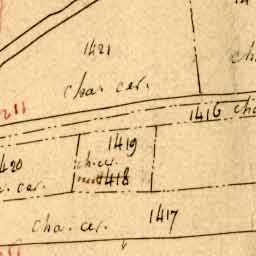 1421
cha. cer.
1416 cha
1419
ch. cer.
1418
420
cer.
1417
cha. cer.